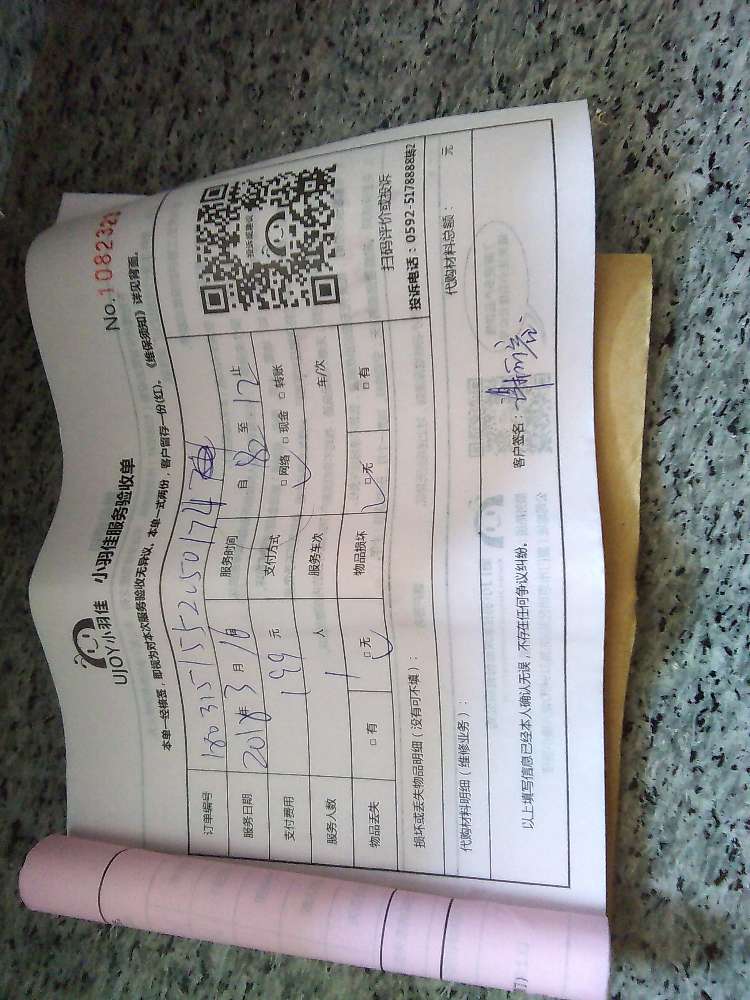 UJOY小羽佳 小羽佳服务验收单
No.1082323
本单一经核签,即视为对本次服务验收无异议。本单一式两份,客户留存一份(红)。《维保须知》详见背面。
订单编号 180315155205017474
服务日期 2018年3月16日 服务时间 自 8:30 至 12 止
支付费用 199 元 支付方式 □网络 □现金 □转账
服务人数 1 人 服务车次 车/次
物品丢失 □有 □无 物品损坏 □无 □有
投诉或建议
扫码评价或投诉
投诉电话:0592-5178888转2
损坏或丢失物品明细(没有可不填):
代购材料明细(维修业务): 代购材料总额: 元
以上填写信息已经本人确认无误,不存在任何争议纠纷。 客户签名: